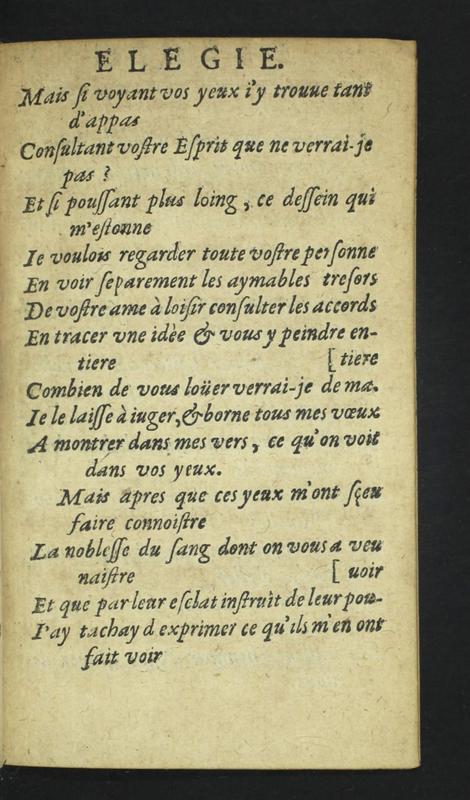 ELEGIE.
Mais ſi voyant vos yeux i'y trouue tant
d'appas
Conſultant voſtre Eſprit que ne verrai-je
pas ?
Et ſi pouſſant plus loing, ce deſſein qui
m'eſtonne
Ie voulois regarder toute voſtre perſonne
En voir ſeparement les aymables treſors
De voſtre ame à loiſir conſulter les accords
En tracer vne idèe & vous y peindre en-
tiere [tiere
Combien de vous loüer verrai-je de ma-
Ie le laiſſe à iuger, & borne tous mes vœux
A montrer dans mes vers, ce qu'on voit
dans vos yeux.
Mais apres que ces yeux m'ont ſçeu
faire connoiſtre
La nobleſſe du ſang dont on vous a veu
naiſtre [uoir
Et que par leur eſclat inſtruit de leur pou-
I'ay tachay d exprimer ce qu'ils m'en ont
fait voir